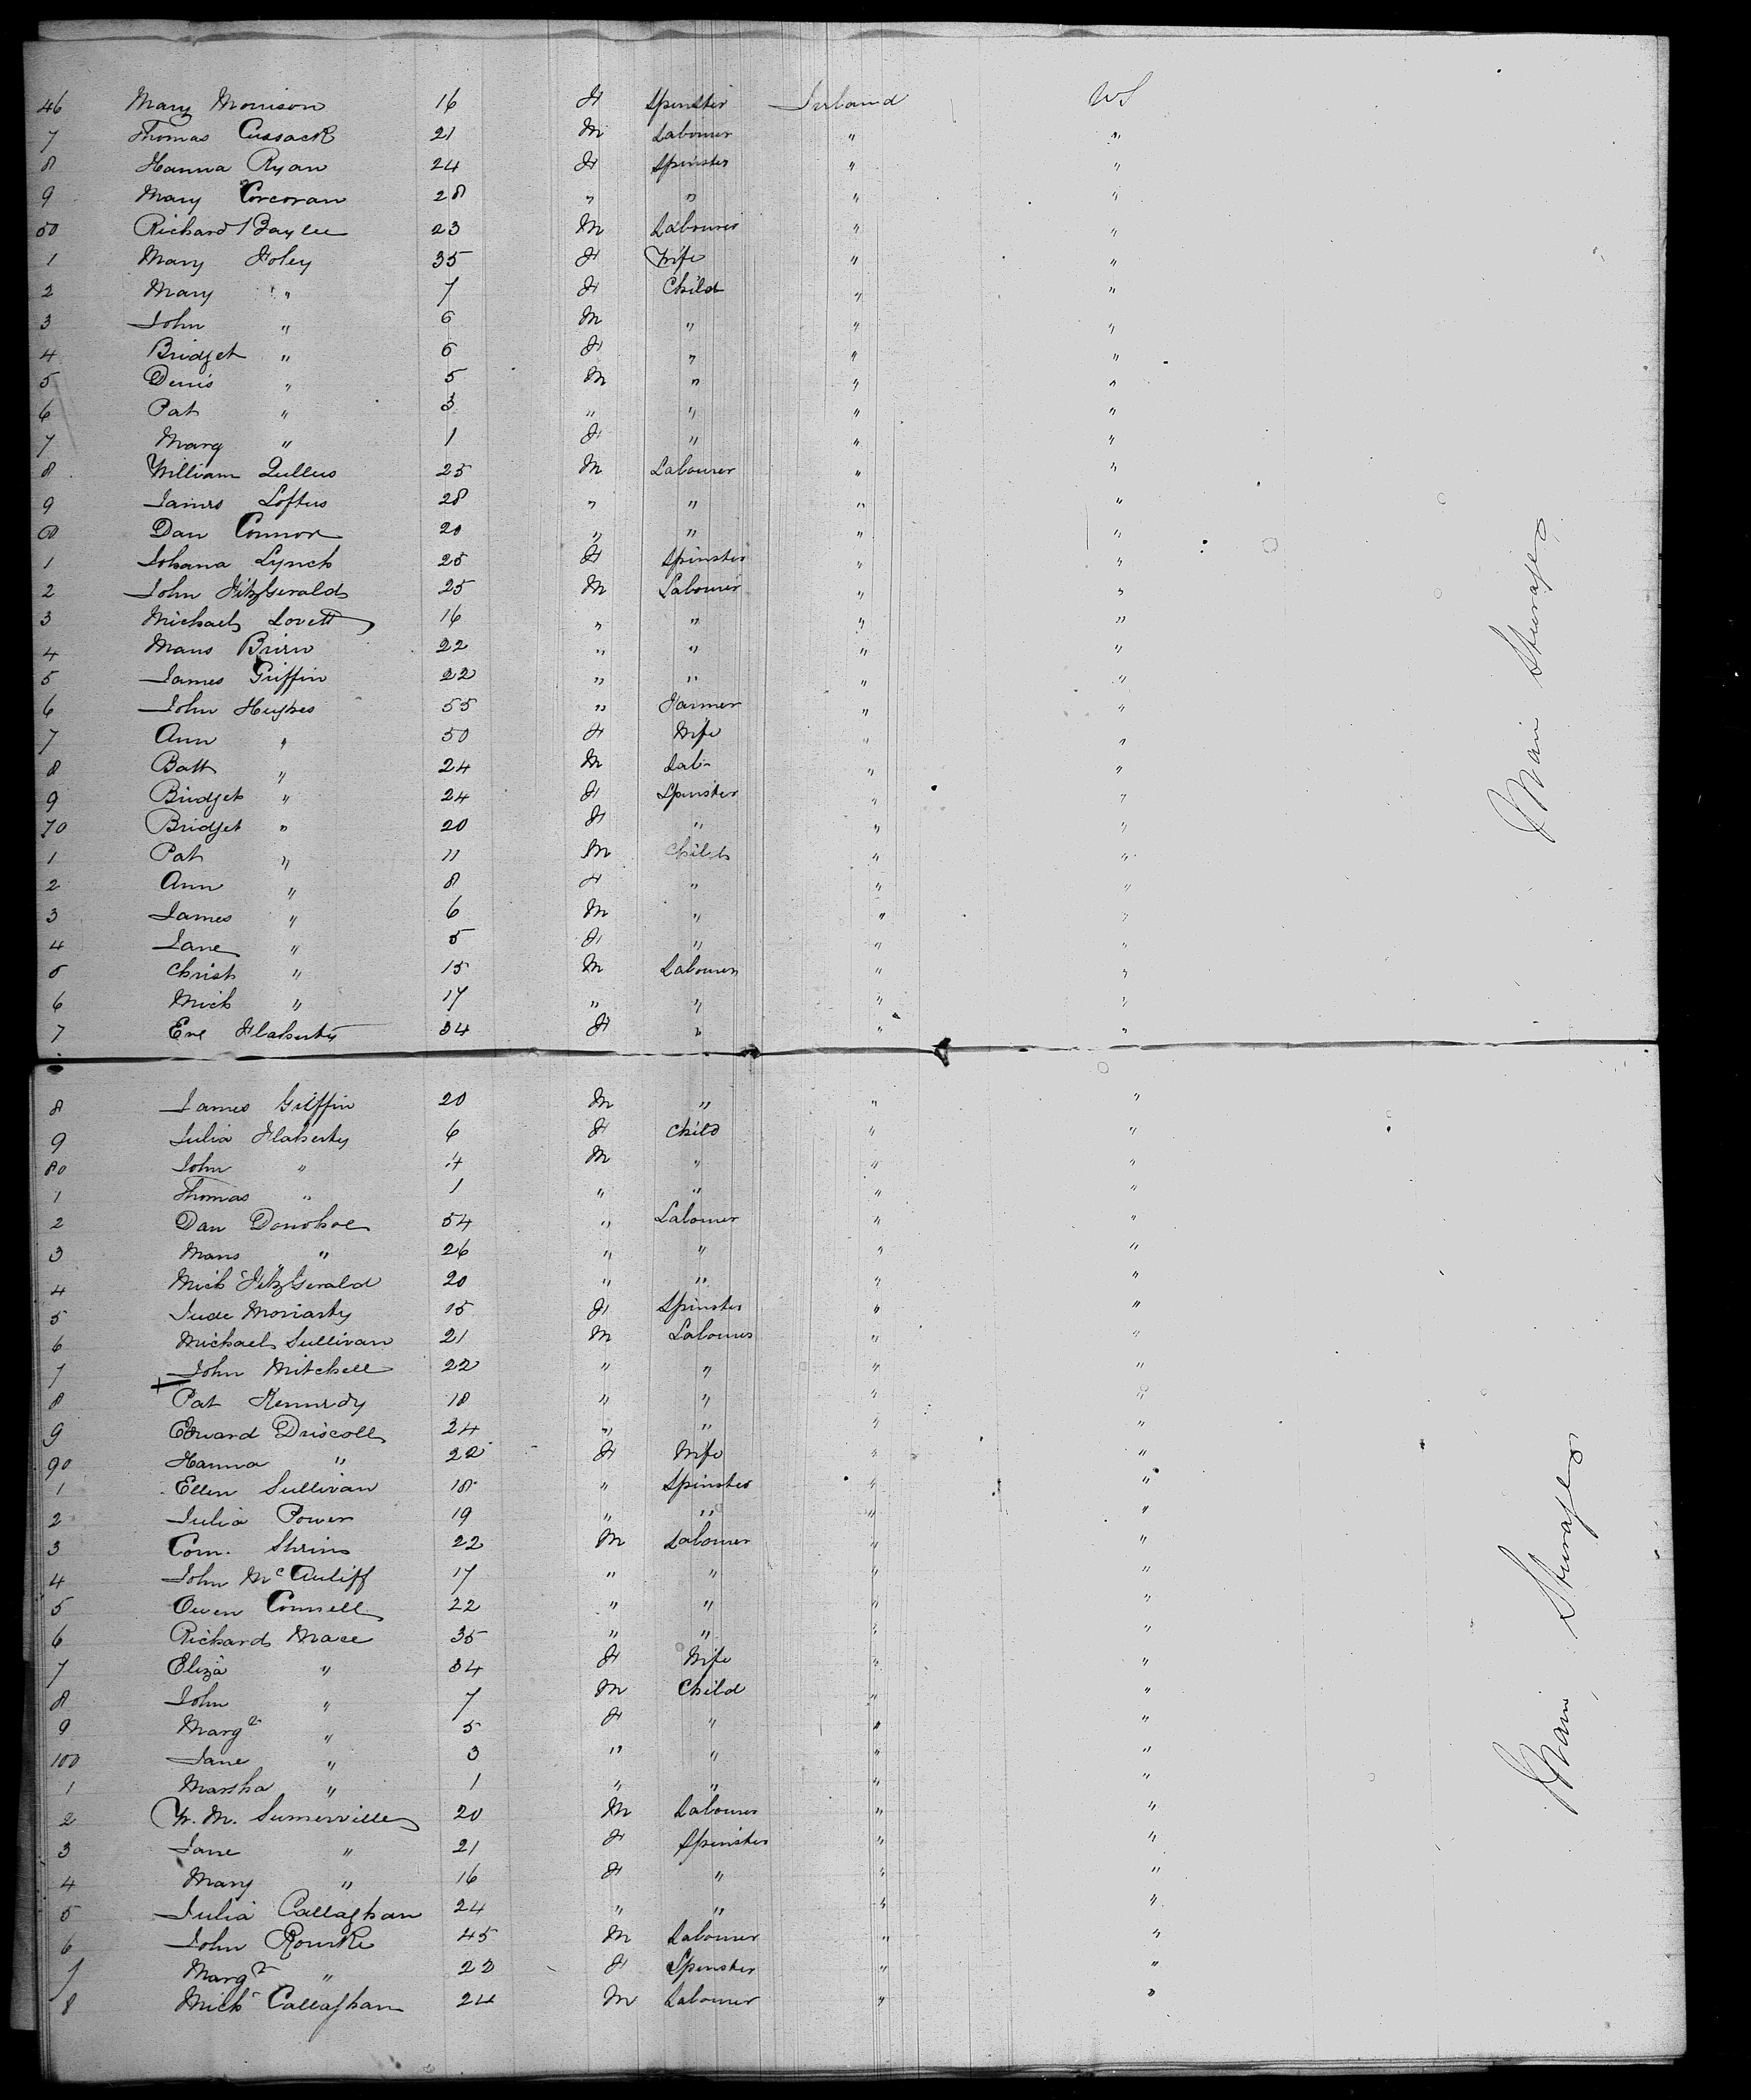 46 Mary Morrison 16 F Spinster Ireland US
7 Thomas Cussack 21 M Labourer " "
8 Hanna Ryan 24 F Spinster " "
9 Mary Corcoran 28 " " " "
50 Richard Baylee 23 M Labourer " "
1 Mary Foley 35 F Wife " "
2 Mary " 7 F Child " "
3 John " 6 M " " "
4 Bridget " 6 F " " "
5 Denis " 5 M " " "
6 Pat " 3 " " " "
7 Marg " 1 F " " "
8 William 25 M Labourer " "
9 James Loftus 28 " " " "
60 Dan Connor 20 " " " "
1 Johana Lynch 25 F Spinster " "
2 John FitzGerald 25 M Labourer " "
3 Michael Lovett 16 " " " "
4 Maus 22 " " " "
5 James Griffin 22 " " " "
6 John Hughes 55 " Farmer " "
7 Ann " 50 F Wife " "
8 Batt " 24 M Lab- " "
9 Bridget " 24 F Spinster " "
70 Bridget " 20 F " " "
1 Pat " 11 M Child " "
2 Ann " 8 F " " "
3 James " 6 M " " "
4 Jane " 5 F " " "
5 Christ " 15 M Labourer " "
6 Mick " 17 " " " "
7 Eve Flaherty 34 F " " "
Main Steerage
8 James Griffin 20 M " " "
9 Julia Flaherty 6 F Child " "
80 John " 4 M " " "
1 Thomas " 1 " " " "
2 Dan Donohoe 54 " Labourer " "
3 Maus " 26 " " " "
4 Mick FitzGerald 20 " " " "
5 Jude Moriarty 15 F Spinster " "
6 Michael Sullivan 21 M Labourer " "
7 John Mitchell 22 " " " "
8 Pat Kennedy 18 " " " "
9 Edward Driscoll 24 " " " "
90 Hanna " 22 F Wife " "
1 Ellen Sullivan 18 " Spinster " "
2 Julia Power 19 " " " "
3 Corn. 22 M Labourer " "
4 John McAuliff 17 " " " "
5 Owen Connell 22 " " " "
6 Richard Mace 35 " " " "
7 Eliza " 34 F Wife " "
8 John " 7 M Child " "
9 Margt " 5 F " " "
100 Jane " 3 " " " "
1 Marsha " 1 " " " "
2 W. M. Sumerville 20 M Labourer " "
3 Jane " 21 F Spinster " "
4 Mary " 16 F " " "
5 Julia Callaghan 24 " " " "
6 John Rourke 45 M Labourer " "
7 Margt " 22 F Spinster " "
8 Mick Callaghan 24 M Labourer " "
Main Steerage